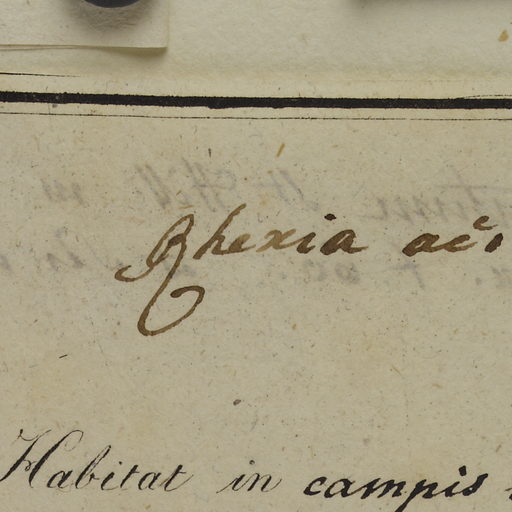 Rhexia
Habitat in campis